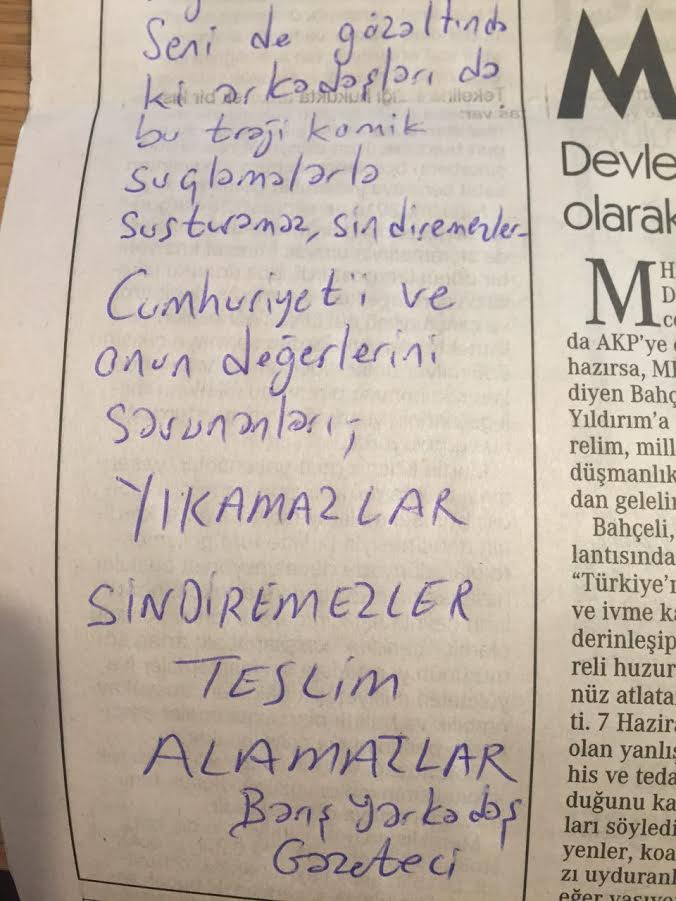 Seni de gözaltında
ki arkadaşları da
bu traji komik
suçlamalarla
susturamaz, sindiremezler-
Cumhuriyet'i ve
onun değerlerini
savunanları;
YIKAMAZLAR
SİNDİREMEZLER
TESLİM
ALAMAZLAR
Barış Yarkadaş
Gazeteci
M
Devle
olarak
M H
D
ce
da AKP'ye
hazırsa, M
diyen Bahç
Yıldırım'a
relim, mill
düşmanlık
dan gelelin
Bahçeli,
lantısında
"Türkiye'n
ve ivme ka
derinleşip
reli huzur
nüz atlata
ti. 7 Hazira
olan yanlış
his ve teda
duğunu ka
ları söyledi
yenler, koa
zı uyduranl
eğer yaşıyo